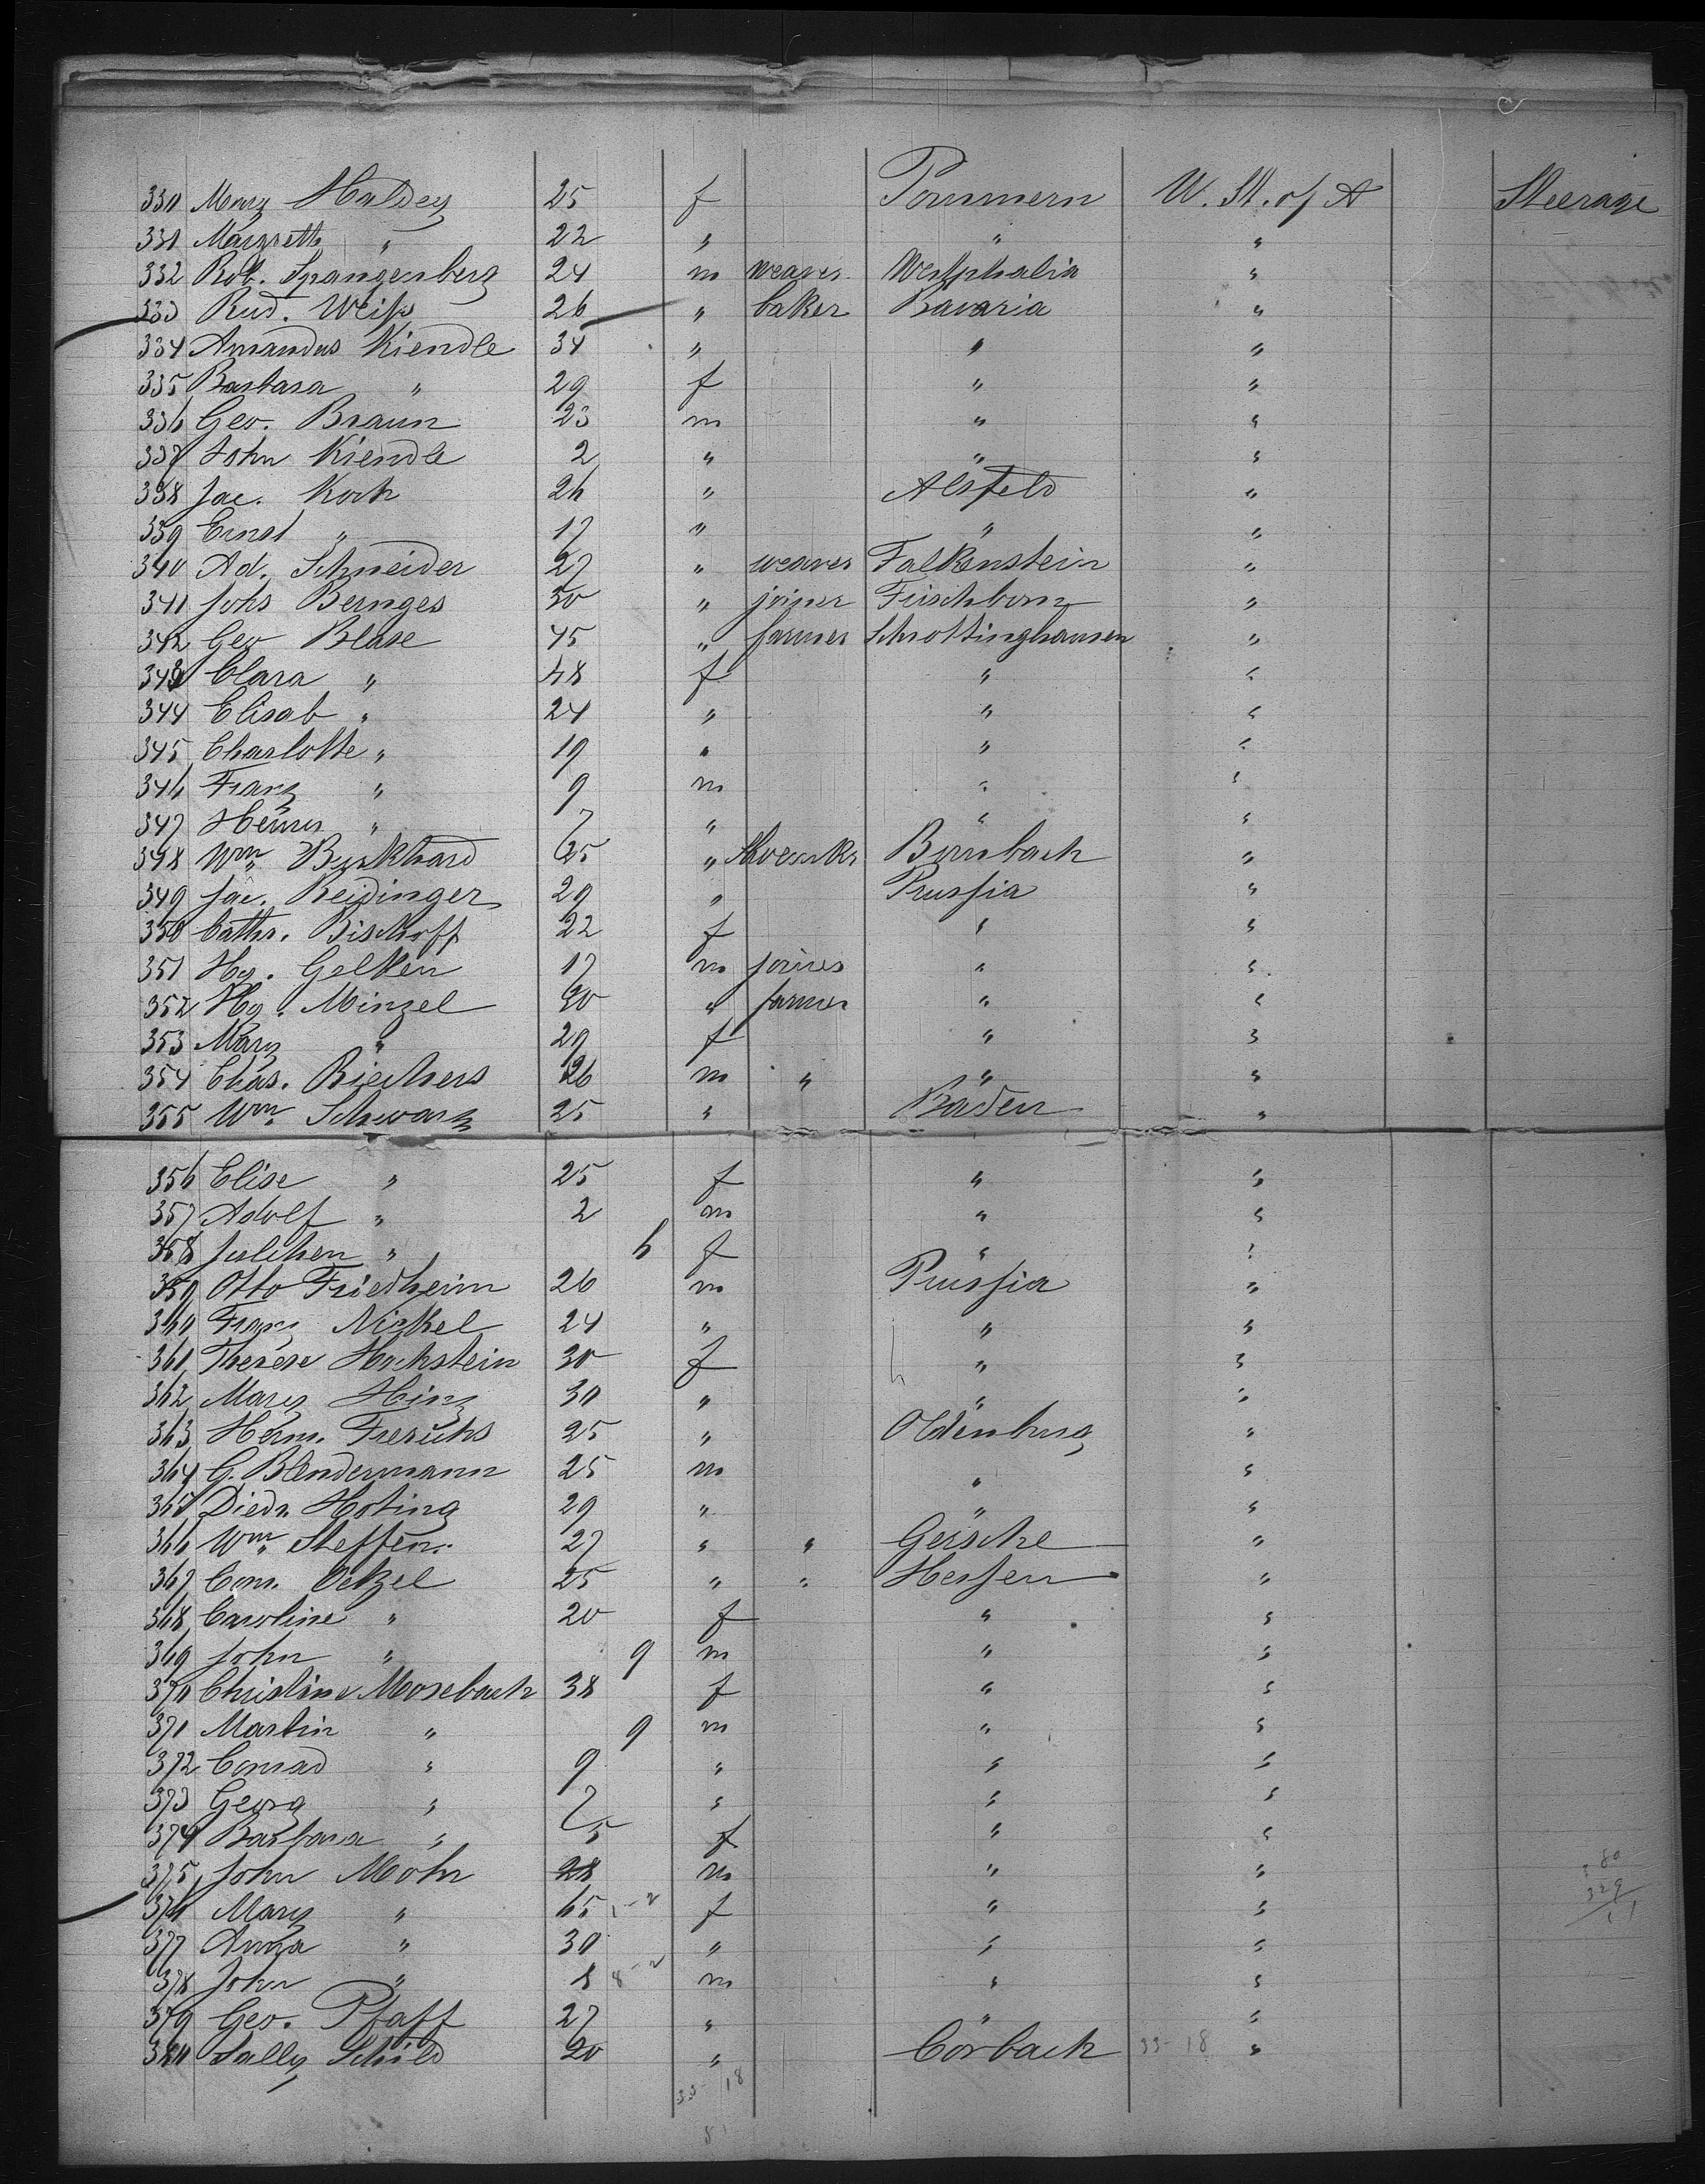 330 Mary Haldey 25 f Pommern U. St. of A Steerage
331 Margreth " 22 " " "
332 Rob. Spangenberg 24 m weaver Westphalia "
333 Rud. Weiss 26 " baker Bavaria "
334 Amandus Kiendle 34 " " "
335 Barbara " 29 f " "
336 Geo. Braun 23 m " "
337 John Kiendle 2 " " "
338 Jac. Koch 26 " Alsfeld "
339 Ernst " 17 " " "
340 Ad. Schneider 27 " weaver Falkenstein "
341 Johs Bernges 30 " joiner Fischborn "
342 Geo Blase 45 " farmer Schrottinghausen "
343 Clara " 48 f " "
344 Elisab " 24 " " "
345 Charlotte " 19 " " "
346 Franz " 9 m " "
347 " 7 " " "
348 Wm. Burkhard 25 " Shoemkr Birnbach "
349 Jac. Reidinger 29 " Prussia "
350 Cathr. Bischoff 22 f " "
351 Hy. Gelken 17 m joiner " "
352 Hy. Minzel 30 " farmer " "
353 Mary " 29 f " "
354 Chas. Riechers 26 m " " "
355 Wm. Schwarz 25 " Baden "
356 Elise " 25 f " "
357 Adolf " 2 m " "
358 Julchen " 6 f " "
359 Otto Friedheim 26 m Prussia "
360 Franz Nickel 24 " " "
361 Therese Hockstein 30 f " "
362 Mary Hinz 30 " " "
363 Herm. Frerichs 25 " Oldenburg "
364 G. Blendermann 25 m " "
365 Diedr. Hoting 29 " " "
366 Wm. Steffen 27 " " "
367 Con. Oetzel 25 " " Hessen "
368 Caroline " 20 f " "
369 John " 9 m " "
370 Christine Mosebach 38 f " "
371 Martin " 9 m " "
372 Conrad " 9 " " "
373 Georg " 7 " " "
374 Barbara " 5 f " "
375 John Mohr 28 m " "
376 Mary " 65 f " "
377 Anna " 30 " " "
378 John " 8 m " "
379 Geo. Pfaff 27 " " "
380 Sally Schild 20 " Corbach 33-18 "
33-18